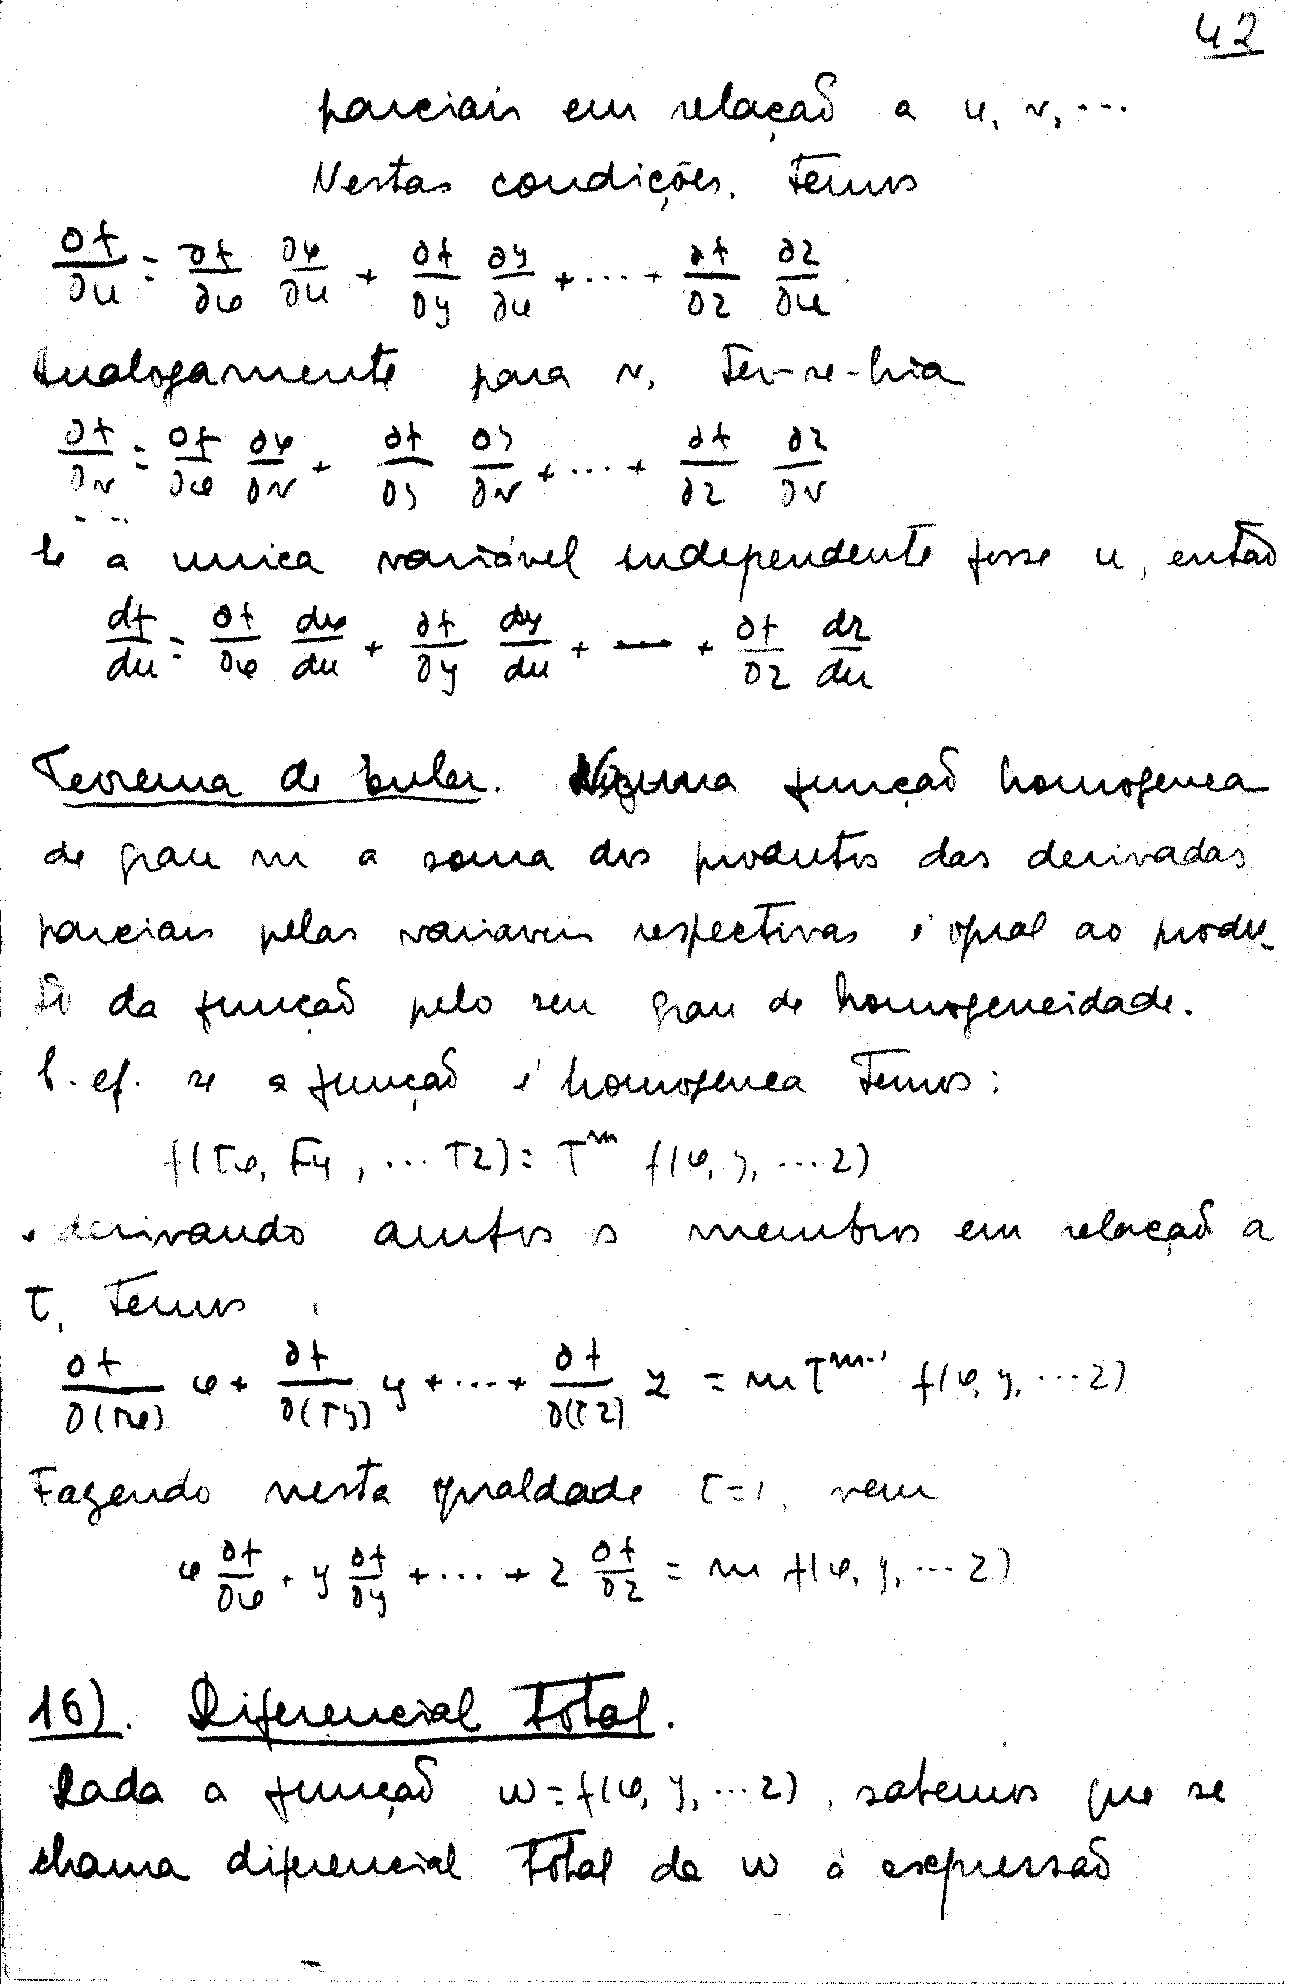 42
parciais em relação a u, v, ...
Nestas condições, temos
∂f/∂u = ∂f/∂x ∂x/∂u + ∂f/∂y ∂y/∂u + ... + ∂f/∂z ∂z/∂u
Analogamente para v, ter-se-hia
∂f/∂v = ∂f/∂x ∂x/∂v + ∂f/∂y ∂y/∂v + ... + ∂f/∂z ∂z/∂v
Se a unica variável independente fosse u, então
df/du = ∂f/∂x dx/du + ∂f/∂y dy/du + — + ∂f/∂z dz/du
Teorema de Euler. Numa função homogenea
de grau m a soma dos produtos das derivadas
parciais pelas variaveis respectivas é igual ao produ-
to da função pelo seu grau de homogeneidade.
C. ef. se a função é homogenea temos:
f(τx, τy, ... τz) = τ^m f(x, y, ... z)
e derivando ambos os membros em relação a
τ, temos
∂f/∂(τx) x + ∂f/∂(τy) y + ... + ∂f/∂(τz) z = m τ^(m-1) f(x, y, ... z)
Fazendo nesta igualdade τ=1, vem
x ∂f/∂x + y ∂f/∂y + ... + z ∂f/∂z = m f(x, y, ... z)
16). Diferencial Total.
Dada a função w = f(x, y, ... z), sabemos que se
chama diferencial total de w á expressão